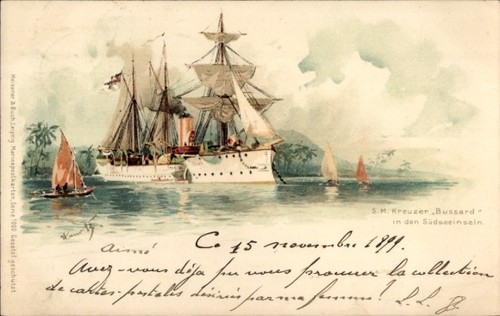 Meissner & Buch, Leipzig, Marinepostkarten, Serie 1002 Gesetzl. geschützt
S.M. Kreuzer „Bussard"
in den Südseeinseln.
aimé
Ce 15 novembre 1899.
Avez-vous déja pu vous procurer la collection
de cartes-postales désirés par ma femme? L. L. B